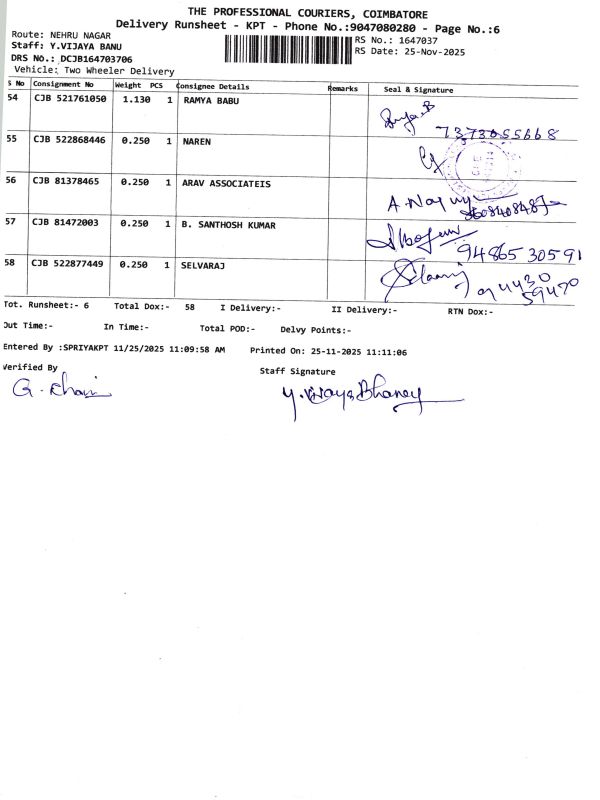 THE PROFESSIONAL COURIERS, COIMBATORE
Delivery Runsheet - KPT - Phone No.:9047080280 - Page No.:6
Route: NEHRU NAGAR
RS No.: 1647037
Staff: Y.VIJAYA BANU
RS Date: 25-Nov-2025
DRS No.: DCJB164703706
Vehicle: Two Wheeler Delivery
S No Consignment No Weight PCS Consignee Details Remarks Seal & Signature
54 CJB 521761050 1.130 1 RAMYA BABU
7373055668
55 CJB 522868446 0.250 1 NAREN
56 CJB 81378465 0.250 1 ARAV ASSOCIATEIS
57 CJB 81472003 0.250 1 B. SANTHOSH KUMAR
94865 30591
58 CJB 522877449 0.250 1 SELVARAJ
Tot. Runsheet:- 6 Total Dox:- 58 I Delivery:- II Delivery:- RTN Dox:-
Out Time:- In Time:- Total POD:- Delvy Points:-
Entered By :SPRIYAKPT 11/25/2025 11:09:58 AM Printed On: 25-11-2025 11:11:06
Verified By
Staff Signature